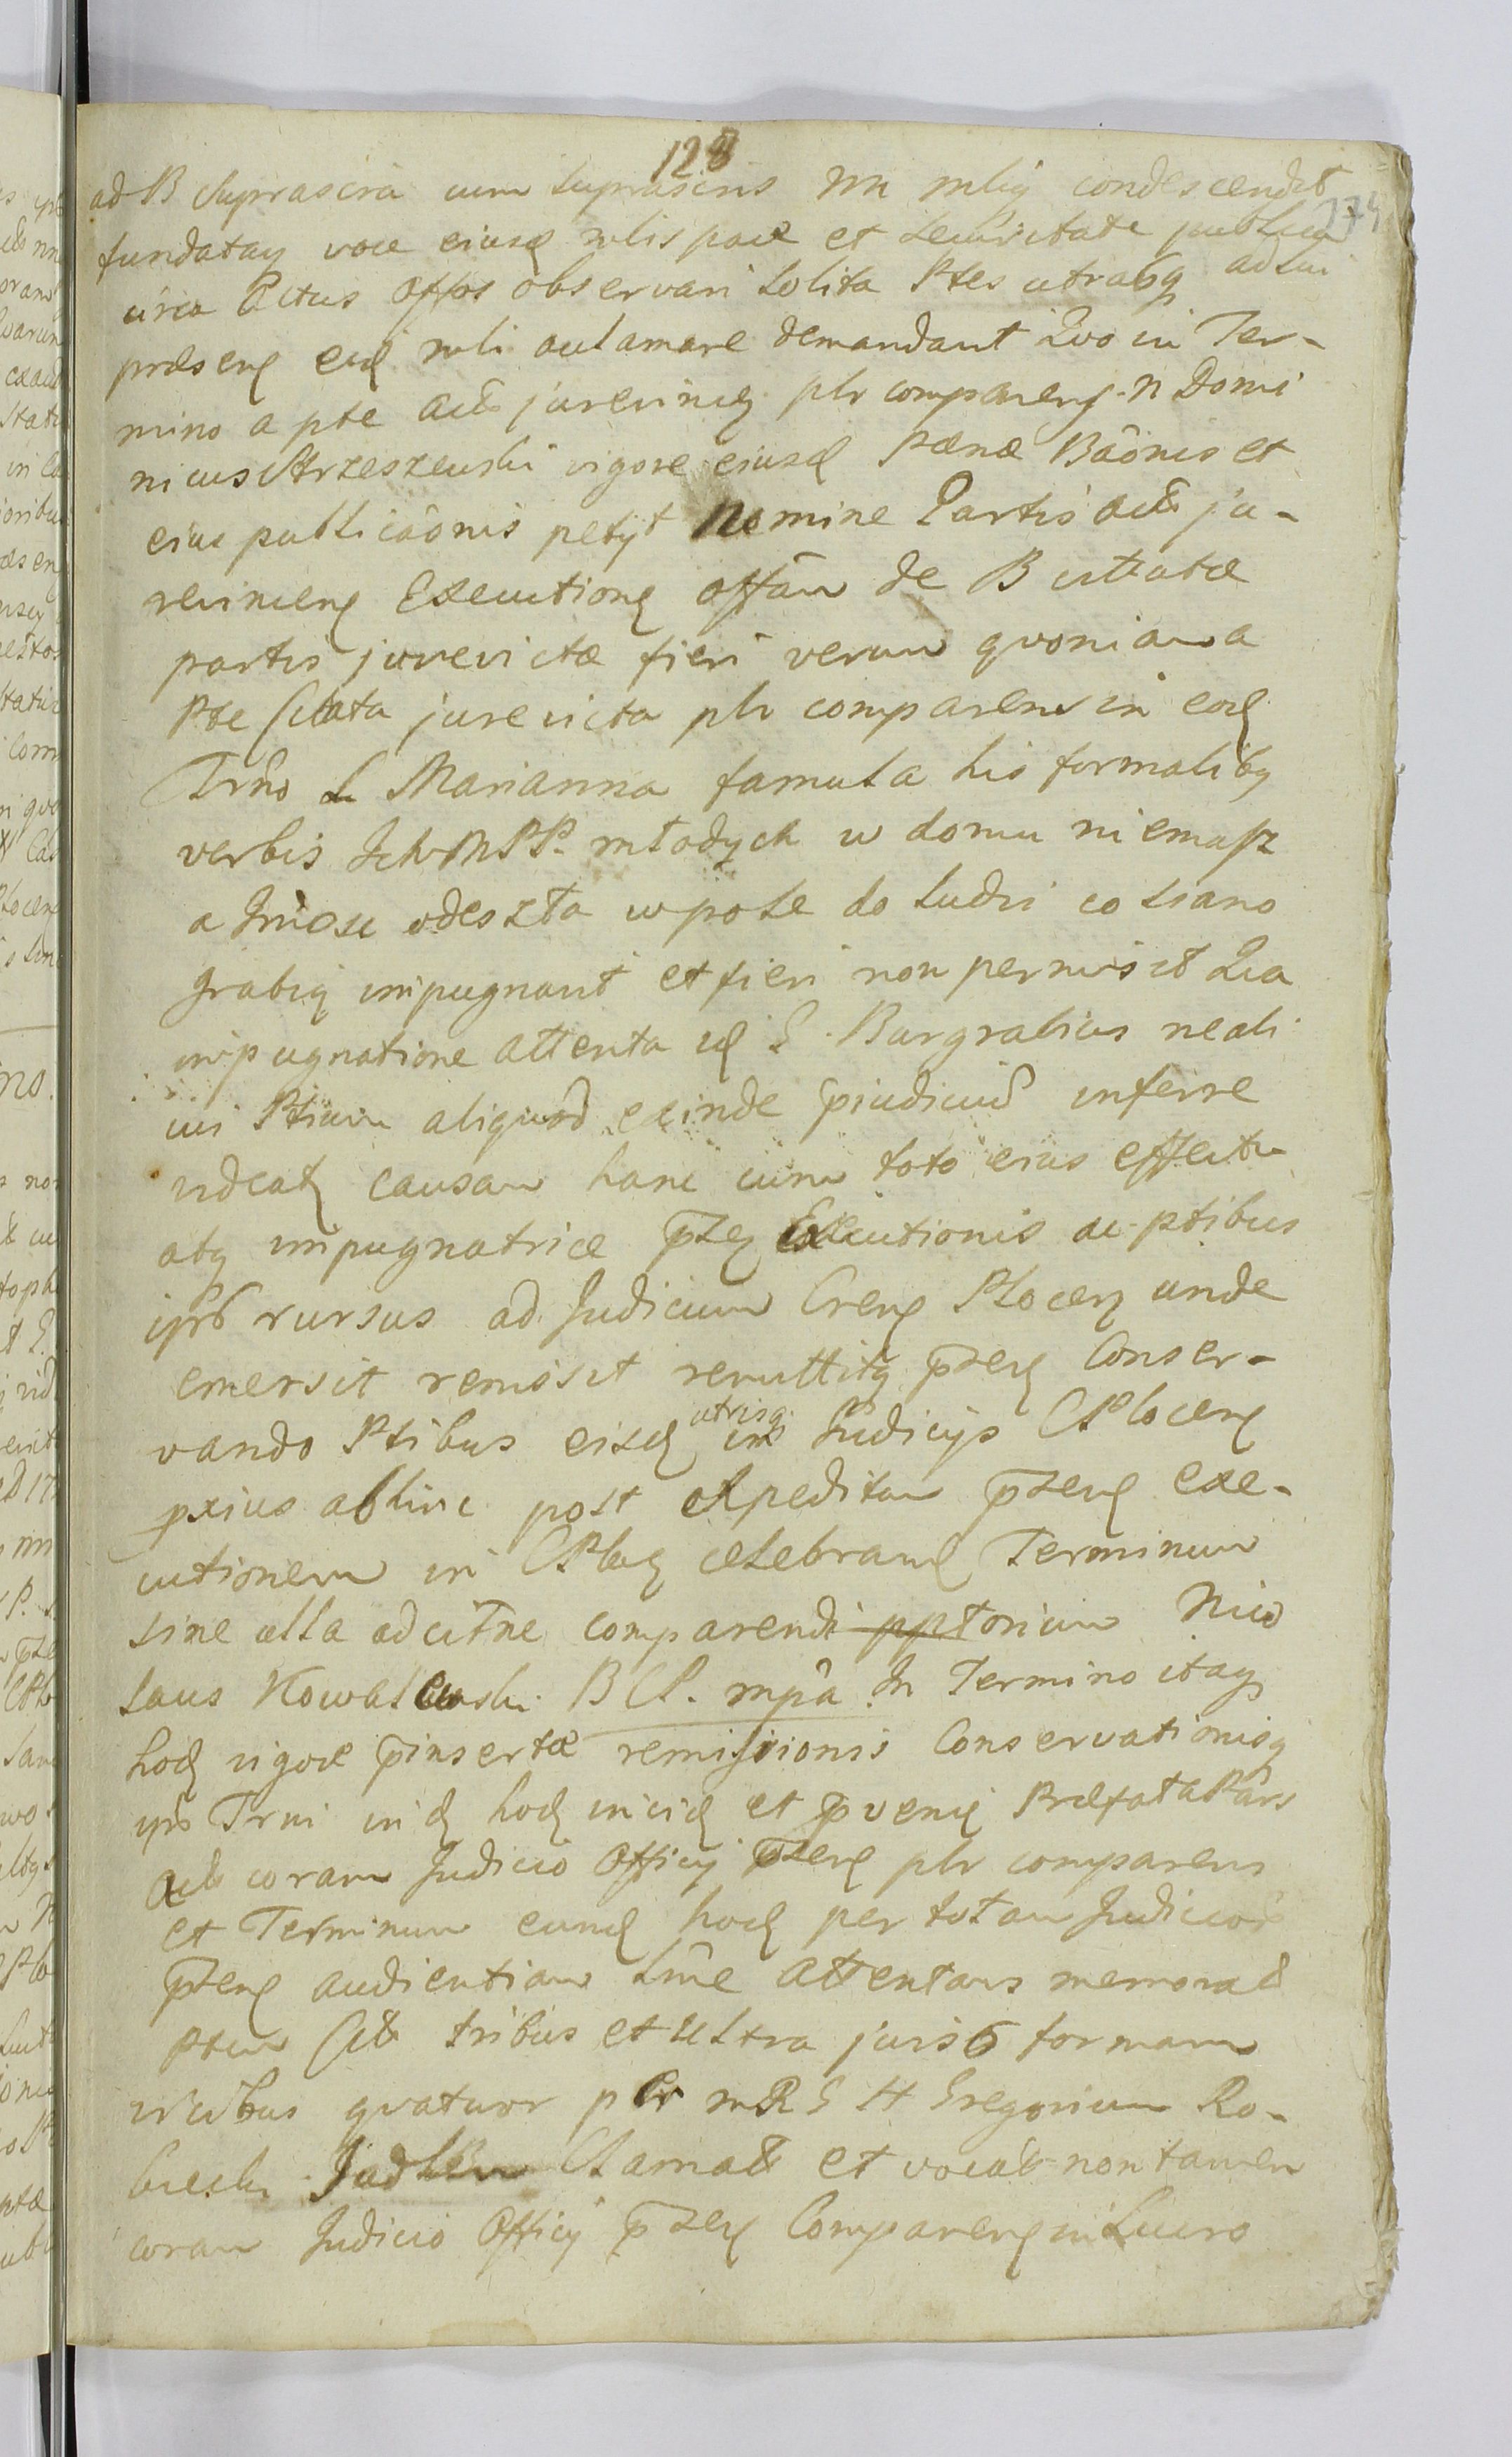 128
174
ad B suprascra cum suprascris mlig condescendit
fundatag voce eiusd mlis pace et securitate publica
circa Actus Offos observari solita Ptes utrasq ad sui
præsenę eid mli aclamare demandavit Quo in Ter-
mino a pte act jurevincę plr comparenę N Domi
nicus Strzeszewski vigore eiusd Pænæ Baōnis et
eius publicāonis petÿt Nomine Partis act ju-
revincenę Executionę offām de B citatæ
partis jurevictæ fieri verum qvoniam a
Pte Citata jurevicta plr comparens in eod
Trno L Marianna famula his formalibq
verbis Ich M PP. młodych w domu niemasz
a Jmość odeszła w pole do ludzi co siano
grabią impugnavit et fieri non permisit Qua
impugnatione attenta id G. Burgrabius ne ali
cui Ptium aliquod exinde piudiciū inferre
videatę causam hanc cum toto eius effectu
atq impugnatrice pzeę Executionis ac ptibus
ipsis rursus ad Judicium Crenę Plocenę unde
emersit remisit remittitq pzeę Conser-
vando Ptibus eisd utrisq in Judicijs CPlocenę
pxius abhinc post expeditam pzenę exe-
cutionem in CPlocę celebrand Terminum
sine ulla adcitñe comparendi pptorium Nico
laus Kowalewski B CP. mpâ In Termino itaq
hod vigore pinsertæ remissionis Conservationisq
ips Trni in d hod incid et pvenię Præfata Pars
act coram Judicio Officij pzenę plr comparens
et Terminum eund hod per totam Judicior
pzenę audientiam lime attentans memorat
ptem Cit tribus et ultra juris formam
vicibus qvatuor plr m R G H Gregorium Ro-
Clamat et vocat non tamen
coram Judicio Officij pzenę Comparenę in Lucro